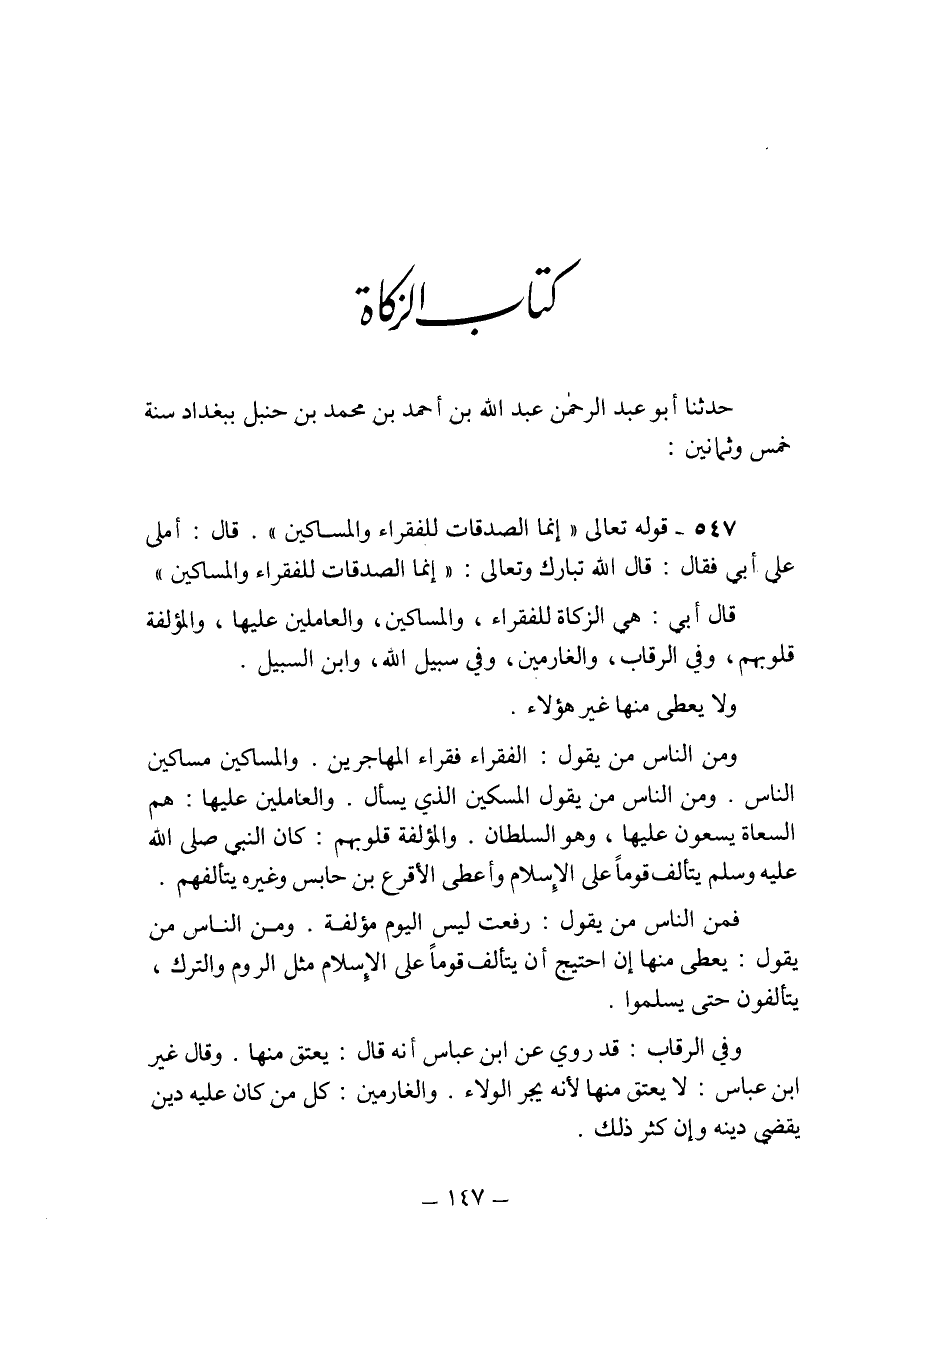 كتاب الزكاة
حدثنا أبو عبد الرحمٰن عبد الله بن أحمد بن محمد بن حنبل ببغداد سنة
خمس وثمانين :
٥٤٧ ـ قوله تعالى « إنما الصدقات للفقراء والمساكين » . قال : أملى
علي أبي فقال : قال الله تبارك وتعالى : « إنما الصدقات للفقراء والمساكين »
قال أبي : هي الزكاة للفقراء ، والمساكين، والعاملين عليها ، والمؤلفة
قلوبهم، وفي الرقاب، والغارمين، وفي سبيل الله، وابن السبيل .
ولا يعطى منها غير هؤلاء .
ومن الناس من يقول : الفقراء فقراء المهاجرين . والمساكين مساكين
الناس . ومن الناس من يقول المسكين الذي يسأل . والعاملين عليها : هم
السعاة يسعون عليها ، وهو السلطان . والمؤلفة قلوبهم : كان النبي صلى الله
عليه وسلم يتألف قوماً على الإسلام وأعطى الأقرع بن حابس وغيره يتألفهم .
فمن الناس من يقول : رفعت ليس اليوم مؤلفة . ومن الناس من
يقول : يعطى منها إن احتيج أن يتألف قوماً على الإسلام مثل الروم والترك ،
يتألفون حتى يسلموا .
وفي الرقاب : قد روي عن ابن عباس أنه قال : يعتق منها . وقال غير
ابن عباس : لا يعتق منها لأنه يجر الولاء . والغارمين : كل من كان عليه دين
يقضي دينه وإن كثر ذلك .
– ١٤٧ –